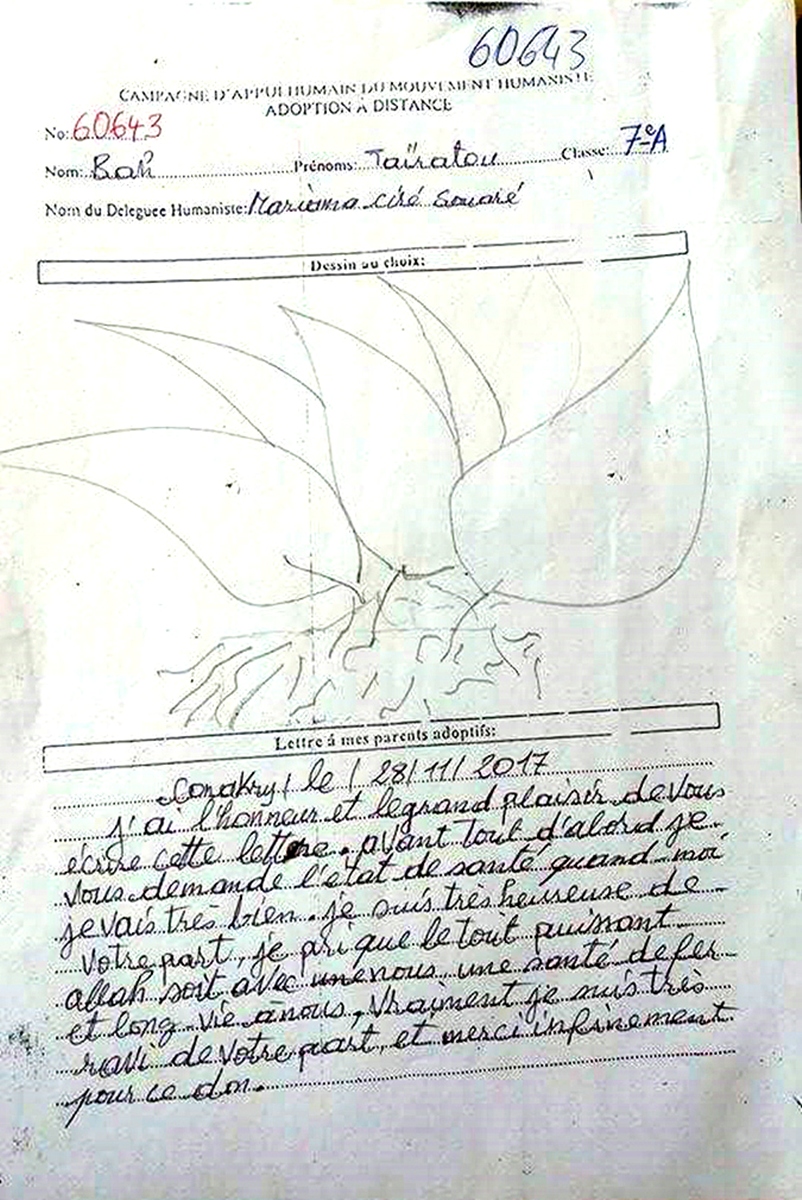 60643
CAMPAGNE D'APPUI HUMAIN DU MOUVEMENT HUMANISTE
ADOPTION À DISTANCE
No: 60643
Nom: Bah Prénoms: Taïratou Classe: 7e A
Nom du Deleguee Humaniste: Mariama ciré Souaré
Dessin au choix:
Lettre á mes parents adoptifs:
Conakry, le / 28/11/ 2017
j'ai l'honneur et le grand plaisir de vous
écrire cette lettre. avant tout d'abord je
vous demande l'état de santé quand moi
je vais très bien. je suis très heureuse de
votre part, je pri que le tout puissant
allah soit avec une nous, une santé de fer
et long vie à nous, vraiment je suis très
ravi de votre part, et merci infinement
pour ce don.